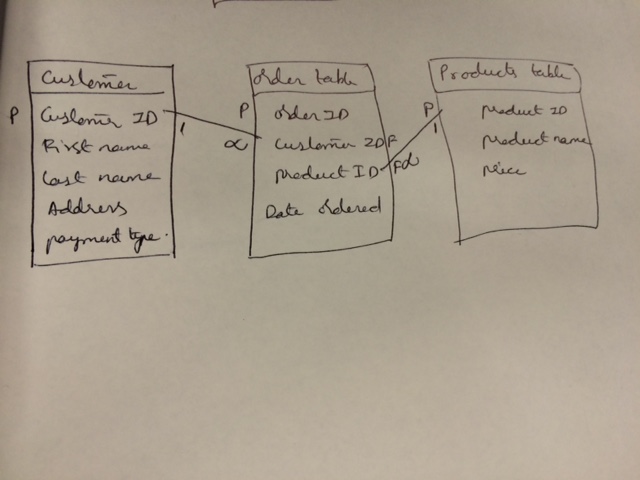 Customer
P Customer ID 1
First name
Last name
Address
payment type.
order table
P order ID
∝ Customer ID F
product ID F ∝
Date ordered
Products table
P 1 product ID
product name
price